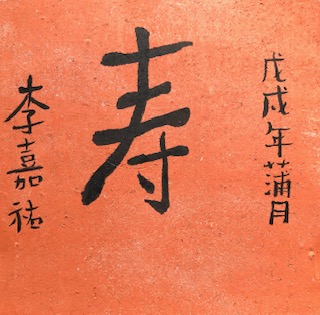 戊戌年蒲月
寿
李嘉祐